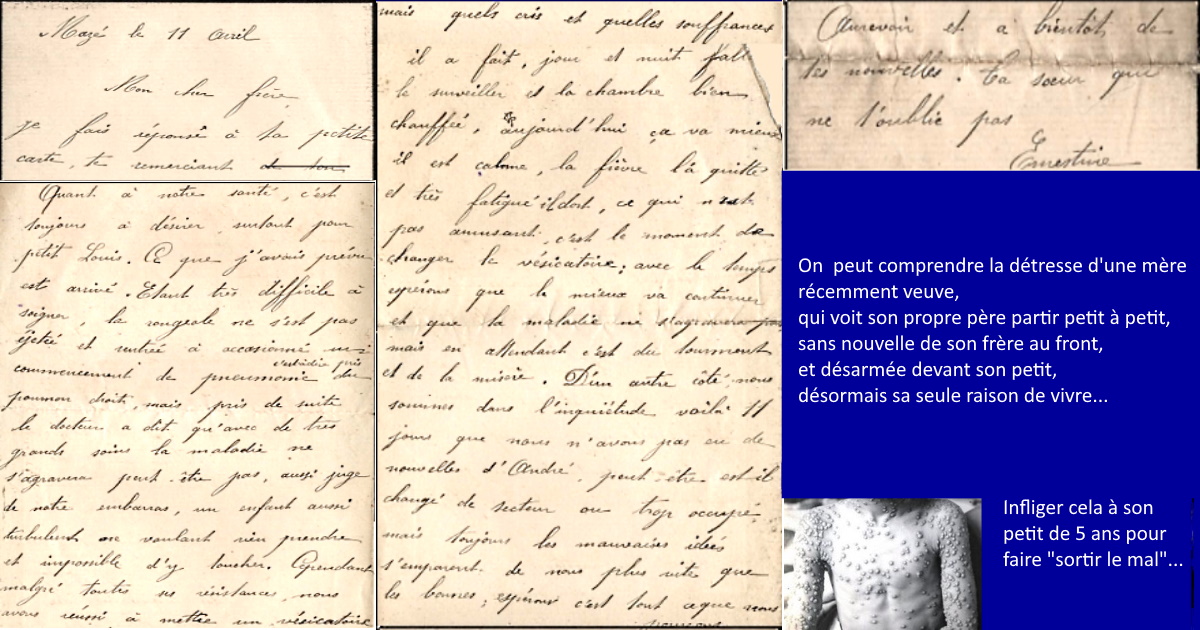 Mazé le 11 Avril
Mon cher frère
Je fais réponse à ta petite
carte, te remerciant de ton
Quant à notre santé, c'est
toujours à désirer, surtout pour
petit Louis. Ce que j'avais prévu
est arrivé. Etant très difficile à
soigner, la rougeole ne s'est pas
ejetée et rentrée à occasionné un
commencement de pneumonie c'est à dire pris du
poumon droit, mais pris de suite
le docteur a dit qu'avec de très
grands soins la maladie ne
s'agravera peut-être pas, aussi juge
de notre embarras, un enfant aussi
turbulent ne voulant rien prendre
et impossible d'y toucher. Cependant
malgré toutes ses résistances, nous
avons réussi à mettre un vésicatoire
mais quels cris et quelles souffrances
il a fait, jour et nuit fall
le surveiller et la chambre bien
chauffée, aujourd'hui ça va mieux
il est calme, la fièvre l'à quitté
et très fatigué il dort, ce qui n'est
pas amusant, c'est le moment de
changer le vésicatoire; avec le temps
espérons que le mieux va continuer
et que la maladie ne s'agravera pas
mais en attendant c'est du tourment
et de la misère. D'un autre côté nous
sommes dans l'inquiétude voilà 11
jours que nous n'avons pas eu de
nouvelles d'André, peut-être est-il
changé de secteur ou trop occupé
mais toujours les mauvaises idées
s'emparent de nous plus vite que
les bonnes; espérons c'est tout ce que nous
pouvons
Aurevoir et a bientôt de
tes nouvelles. Ta sœur qui
ne t'oublie pas
Ernestine
On peut comprendre la détresse d'une mère
récemment veuve,
qui voit son propre père partir petit à petit,
sans nouvelle de son frère au front,
et désarmée devant son petit,
désormais sa seule raison de vivre...
Infliger cela à son
petit de 5 ans pour
faire "sortir le mal"...